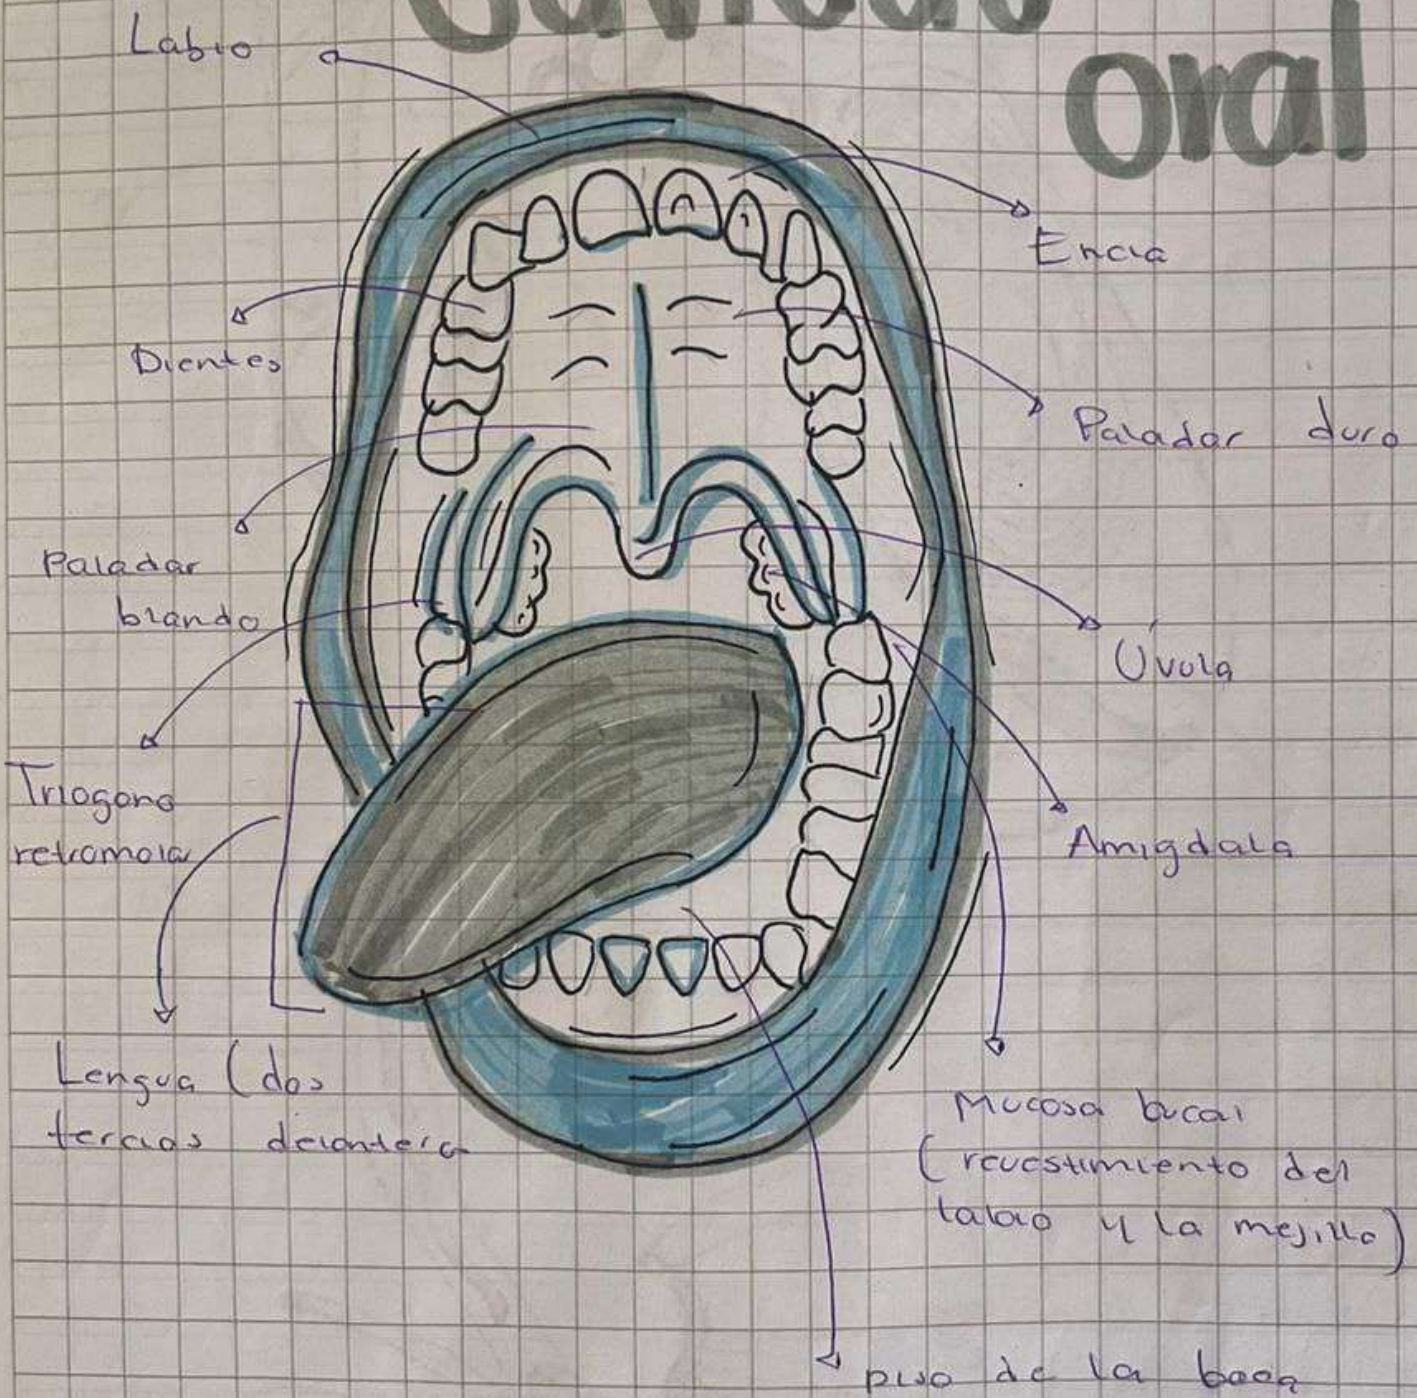 Cavidad
oral
Labio
Encia
Dientes
Paladar duro
Paladar
blando
Úvula
Triogono
retromolar
Amigdala
Lengua (dos
tercios delantera
Mucosa bucal
(revestimiento del
labio y la mejilla)
piso de la boca